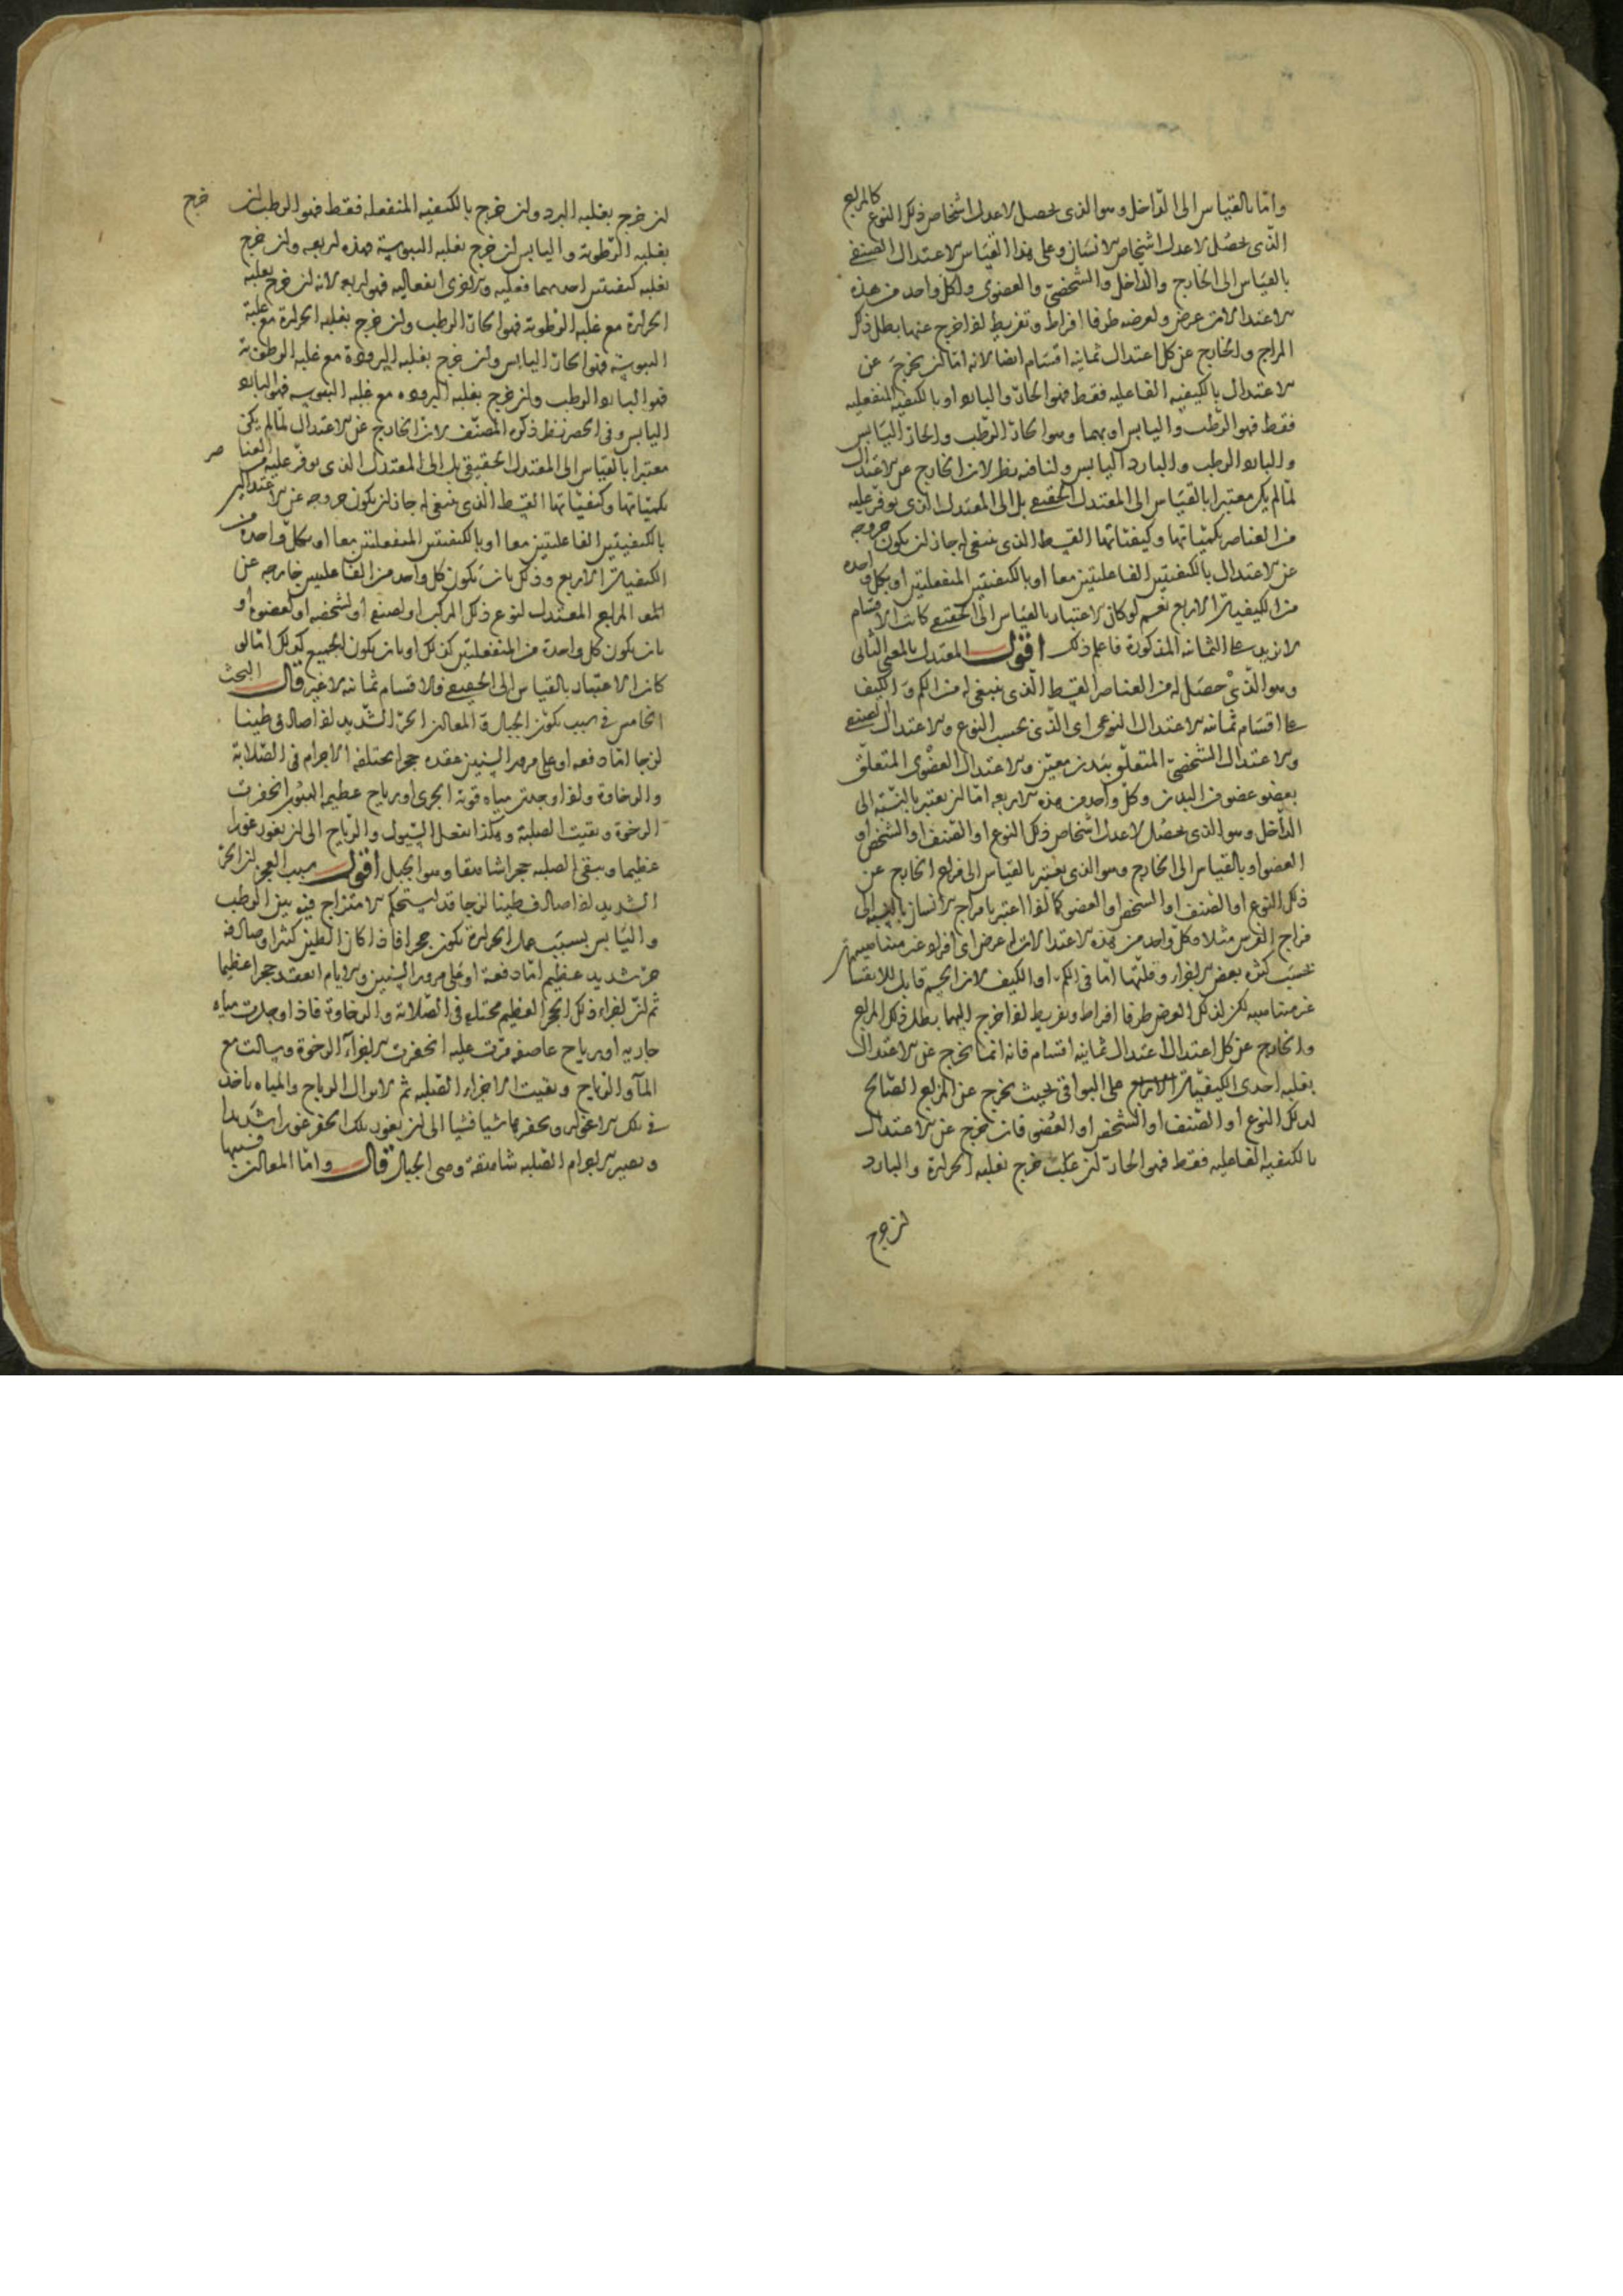 واما بالقياس الى الداخل وهو الذى يحصل لاعدل اشخاص ذلك النوع كالمزاج
الذى يحصل لاعدل اشخاص الانسان وعلى هذا القياس الاعتدال الصنفى
بالقياس الى الخارج والداخل والشخصى والعضوى ولكل واحد من هذه
الاعتدالات عرض ولعرضه طرفا افراط وتفريط اذا خرج عنها بطل ذلك
المزاج والخارج عن كل اعتدال ثمانية اقسام ايضا لانه اما ان يخرج عن
الاعتدال بالكيفيه الفاعليه فقط فهو الحار والبارد او بالكيفيه المنفعليه
فقط فهو الرطب واليابس او بهما وهو الحار الرطب والحار اليابس
والبارد الرطب والبارد اليابس ولنا فيه نظر لان الخارج عن الاعتدال
لما لم يكن معتبرا بالقياس الى المعتدل الحقيقى بل الى المعتدل الذى توفر عليه
من العناصر بكمياتها وكيفياتها القسط الذى ينبغى له جاز ان يكون خروجه
عن الاعتدال بالكيفيتين الفاعليتين معا او بالكيفيتين المنفعلتين او بكل واحده
من الكيفيات الاربع نعم لو كان الاعتبار بالقياس الى الحقيقى كانت الاقسام
لا تزيد على الثمانيه المذكورة فاعلم ذلك اقول المعتدل بالمعنى الثانى
وهو الذى حصل له من العناصر القسط الذى ينبغى له من الكم والكيف
على اقسام ثمانيه الاعتدال النوعى اى الذى بحسب النوع والاعتدال الصنفى
والاعتدال الشخصى المتعلق ببدن معين والاعتدال العضوى المتعلق
بعضو عضو من البدن وكل واحد من هذه الاربعه اما ان يعتبر بالنسبه الى
الداخل وهو الذى يحصل لاعدل اشخاص ذلك النوع او الصنف او الشخص او
العضو او بالقياس الى الخارج وهو الذى يعتبر بالقياس الى مزاج الخارج عن
ذلك النوع او الصنف او الشخص او العضو كما اذا اعتبر بمزاج الانسان بالنسبه الى
مزاج الفرس مثلا وكل واحد من هذه الاعتدالات له عرض اى افراد غير متناهيه
بحسب كثره بعض الاجزاء وقلتها اما فى الكم او الكيف لان الجسم قابل للانقسامات
غير متناهيه لكن لذلك العرض طرفا افراط وتفريط اذا خرج اليهما بطل ذلك المزاج
والخارج عن كل اعتدال اعتدال ثمانيه اقسام فانه انما يخرج عن الاعتدال
بغلبه احدى الكيفيات الاربع على البواقى بحيث يخرج عن المزاج الصالح
لذلك النوع او الصنف او الشخص او العضو فان خرج عن الاعتدال
بالكيفيه الفاعليه فقط فهو الحار ان خرج بغلبه الحرارة والبارد
ان خرج
ان خرج بغلبه البرد وان خرج بالكيفيه المنفعله فقط فهو الرطب ان خرج
بغلبه الرطوبة واليابس ان خرج بغلبه اليبوسة فهذه اربعه وان خرج
بغلبه كيفيتين احديهما فعليه والاخرى انفعاليه فهو اربع لانه ان خرج بغلبه
الحرارة مع غلبه الرطوبة فهو الحار الرطب وان خرج بغلبه الحرارة مع غلبة
اليبوسة فهو الحار اليابس وان خرج بغلبه البرودة مع غلبه الرطوبة
فهو البارد الرطب وان خرج بغلبه البروده مع غلبه اليبوسه فهو البارد
اليابس وفى الحصر نظر ذكره المصنف لان الخارج عن الاعتدال لما لم يكن
معتبرا بالقياس الى المعتدل الحقيقى بل الى المعتدل الذى توفر عليه من العناصر
بكمياتها وكيفياتها القسط الذى ينبغى له جاز ان يكون خروجه عن الاعتدال
بالكيفيتين الفاعليتين معا او بالكيفيتين المنفعلتين معا او بكل واحدة من
الكيفيات الاربع وذلك بان يكون كل واحد من الفاعليتين خارجه عن
المزاج المعتدل لنوع ذلك المركب او لصنفه او لشخصه او لعضوه او
بان يكون كل واحدة من المنفعلتين كذلك او بان يكون الجميع كذلك اما لو
كان الاعتبار بالقياس الى الحقيقى فالاقسام ثمانيه لا غير قال البحث
الخامس فى سبب تكون الجبال والمعادن الحر الشديد اذا صادف طينا
لزجا اما دفعه او على مرور السنين عقده حجرا مختلفه الاجرام فى الصلابة
والرخاوة واذا وجدت مياه قوية الجرى او رياح عظيمه الهبوب انحفرت
الرخوة وبقيت الصلبة وهكذا تفعل السيول والرياح الى ان يغور غورا
عظيما ويبقى الصلبه حجرا شاهقا وهو الجبل اقول سبب الحجر ان الحر
الشديد اذا صادف طينا لزجا قد استحكم الامتزاج فيه بين الرطب
واليابس بسبب عمل الحرارة تكون حجرا فاذا كان الطين كثيرا وصادفه
حر شديد عظيم اما دفعة او على مرور السنين والايام انعقد حجرا عظيما
ثم ان اجزاء ذلك الحجر العظيم مختلفه فى الصلابة والرخاوة فاذا وجدت مياه
جاريه او رياح عاصفه مرت عليه انحفرت الاجزاء الرخوة وسالت مع
الماء والرياح وبقيت الاجزاء الصلبه ثم لا تزال الرياح والمياه ياخذ
فى تلك الاغوار ويحفرها شيا فشيا الى ان يغور تلك الحفر غورا شديدا
ويصير الاجرام الصلبه شاهقة وهى الجبال قال واما المعادن فسببها